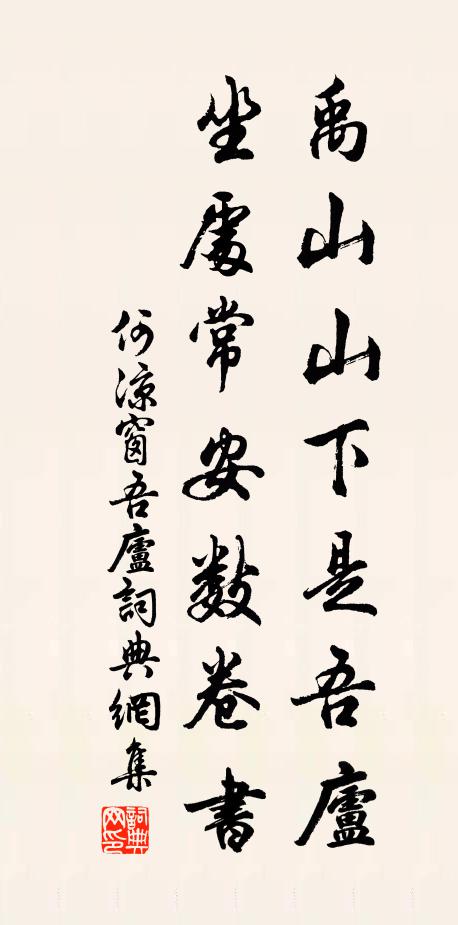 禹山山下是吾廬
坐處常安數卷書
何涼窗吾廬詞典網集
詞典網印